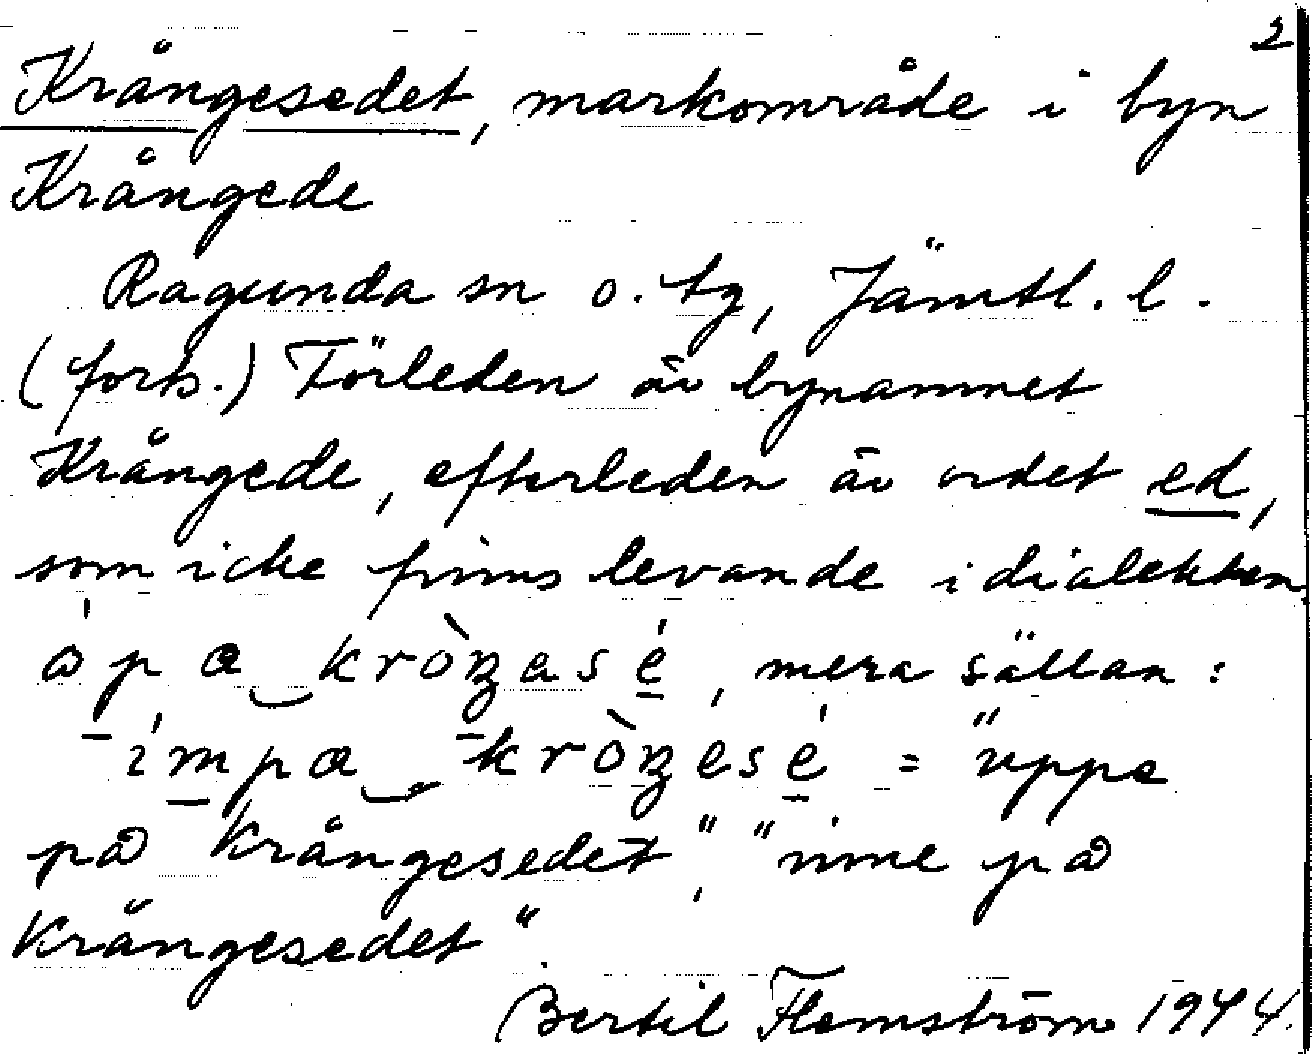 2
Krångesedet, markområde i byn
Krångede
Ragunda sn o. tg, Jämtl. l.
(forts.) Förleden är bynamnet
Krångede, efterleden är ordet ed,
som icke finns levande i dialekten.
ȧpa kròŋasé, mera sällan:
impa kròŋesé = "uppe
på Krångesedet", "inne på
Krångesedet".
Bertil Flemström 1944.